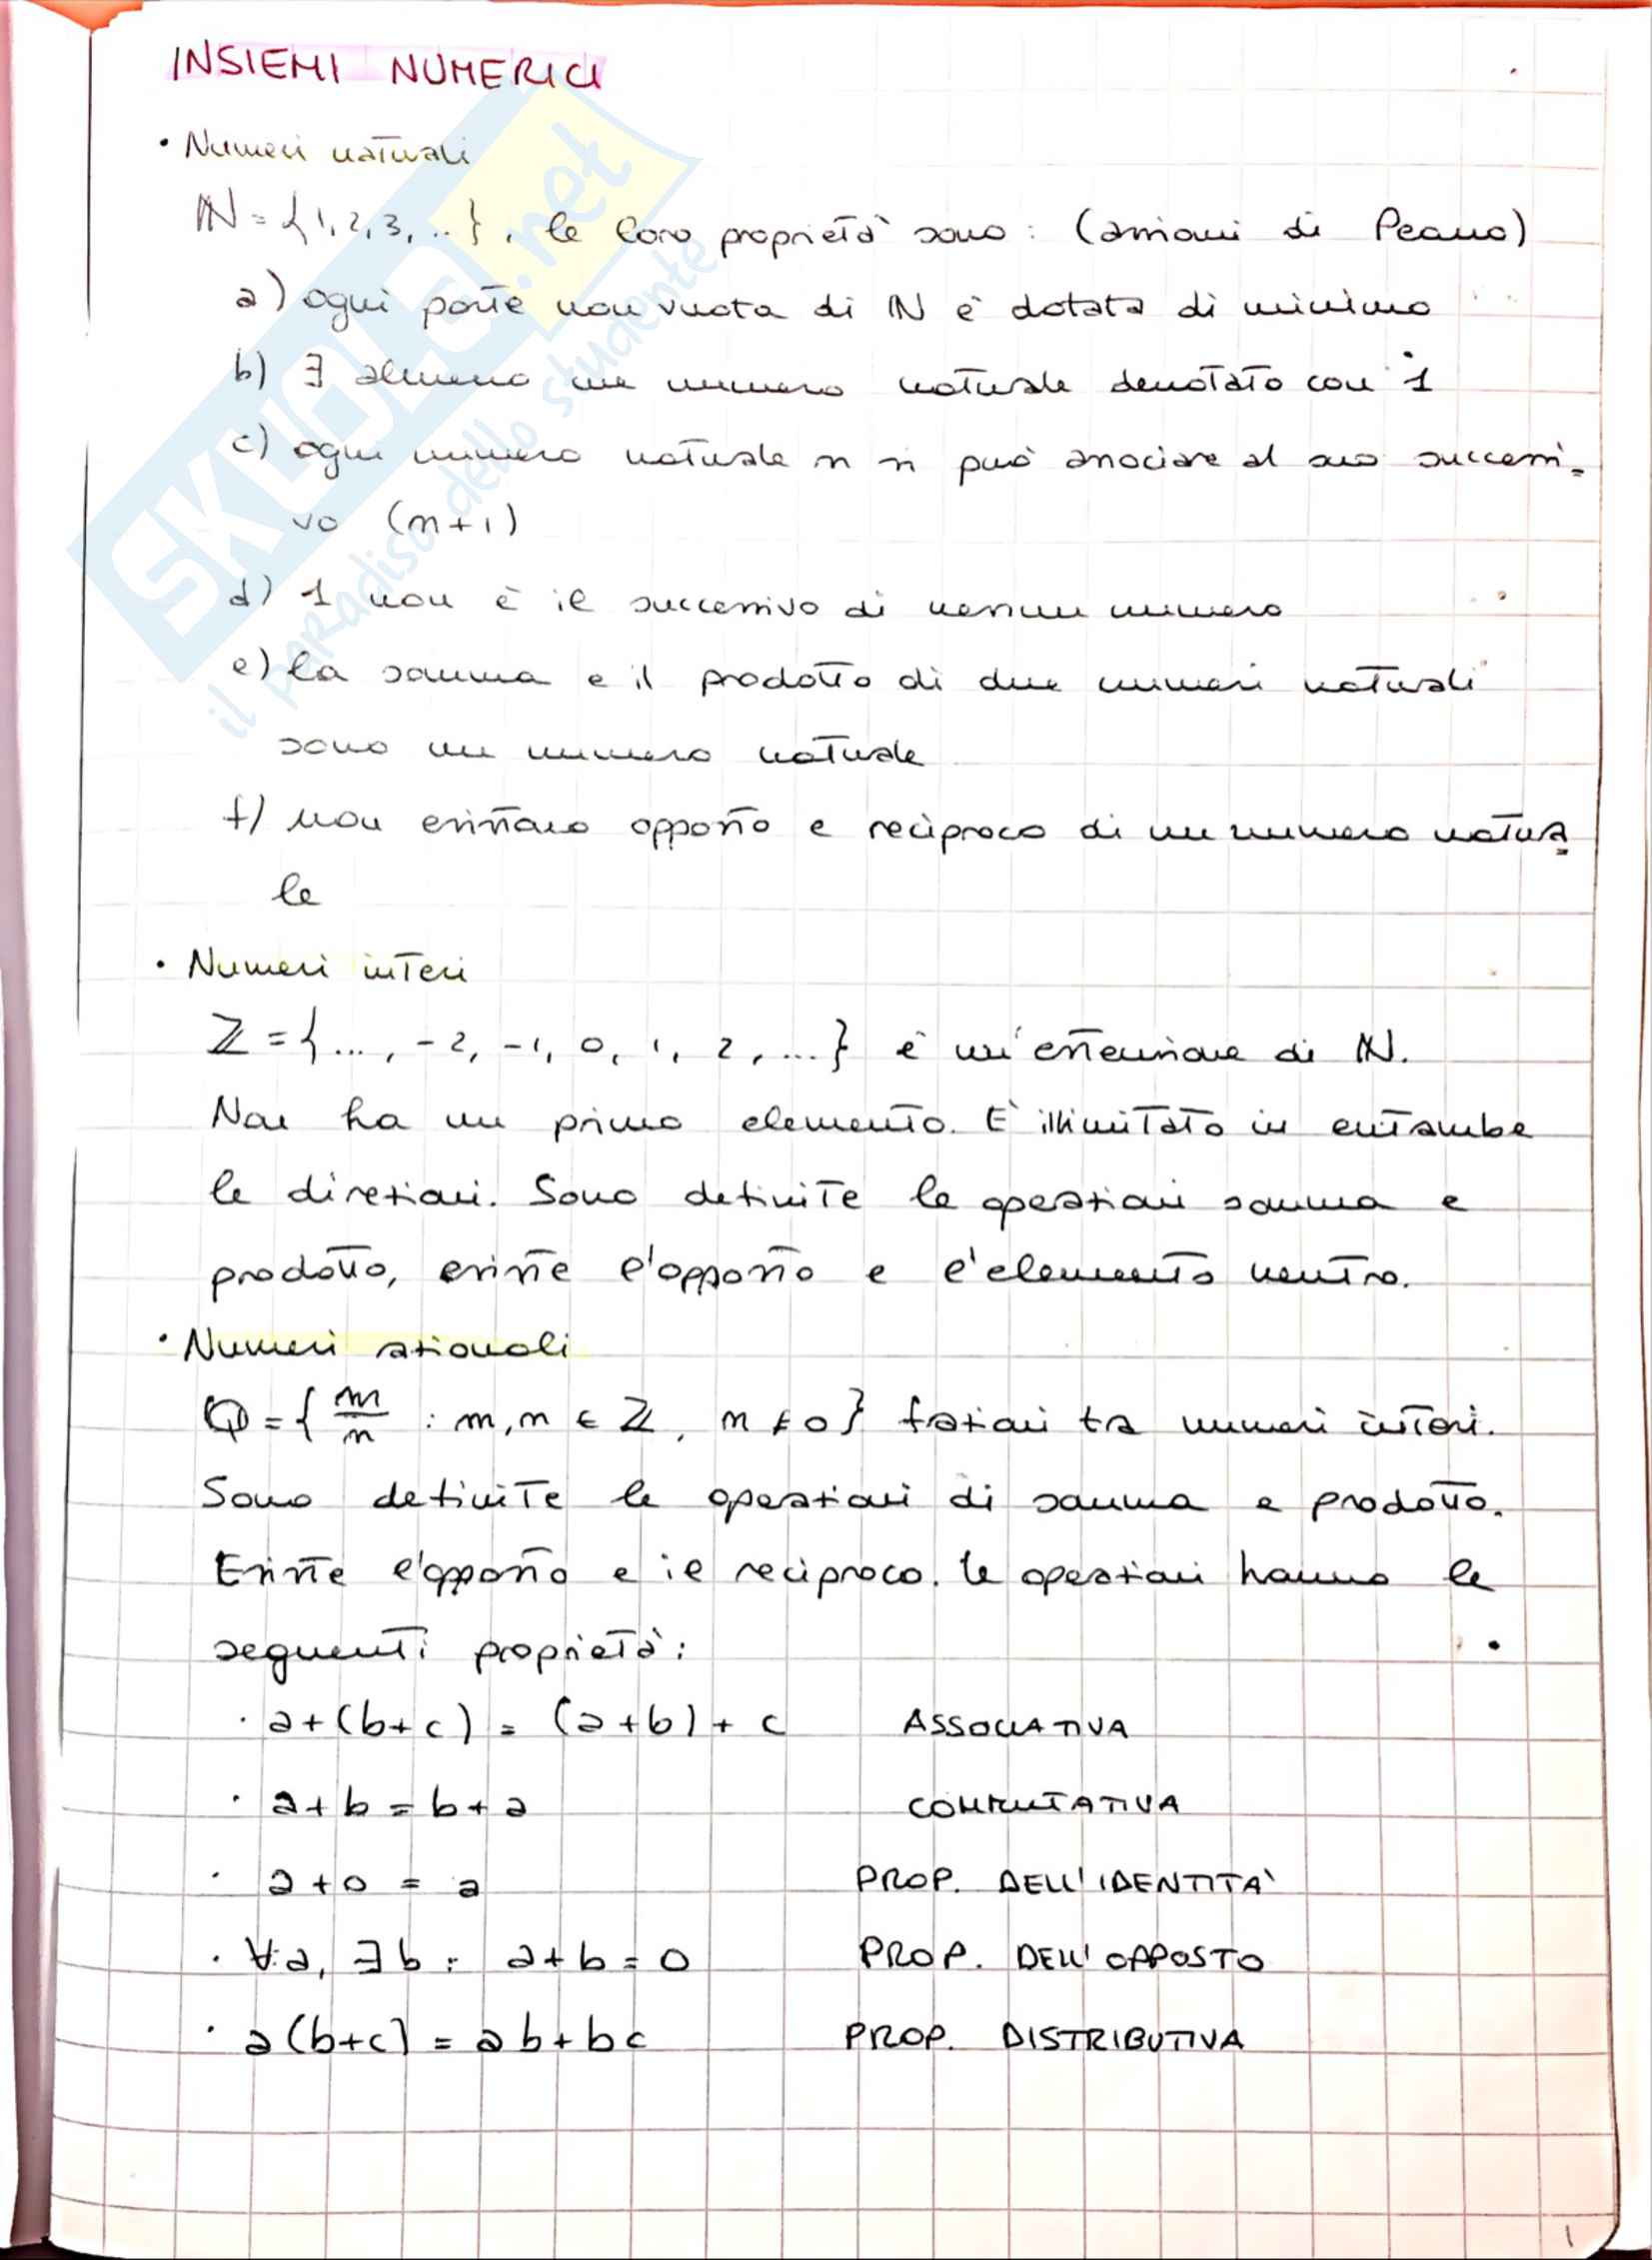 INSIEMI NUMERICI
• Numeri naturali
ℕ = {1, 2, 3, ..}, le loro proprietà sono: (assiomi di Peano)
a) ogni parte non vuota di ℕ è dotata di minimo
b) ∃ almeno un numero naturale denotato con 1
c) ogni numero naturale n si può associare al suo successi=
vo (n+1)
d) 1 non è il successivo di nessun numero
e) la somma e il prodotto di due numeri naturali
sono un numero naturale
f) non esistono opposto e reciproco di un numero natura
le
• Numeri interi
ℤ = {..., -2, -1, 0, 1, 2, ...} è un'estensione di ℕ.
Non ha un primo elemento. È illimitato in entrambe
le direzioni. Sono definite le operazioni somma e
prodotto, esiste l'opposto e l'elemento neutro.
• Numeri razionali
ℚ = { m/n : m, n ∈ ℤ, n ≠ 0} frazioni tra numeri interi.
Sono definite le operazioni di somma e prodotto.
Esiste l'opposto e il reciproco. Le operazioni hanno le
seguenti proprietà:
· a+(b+c) = (a+b)+c ASSOCIATIVA
· a+b = b+a COMMUTATIVA
· a+0 = a PROP. DELL'IDENTITÀ
· ∀a, ∃b : a+b = 0 PROP. DELL'OPPOSTO
· a(b+c) = ab+bc PROP. DISTRIBUTIVA
1
SKUOLA.net
il paradiso dello studente